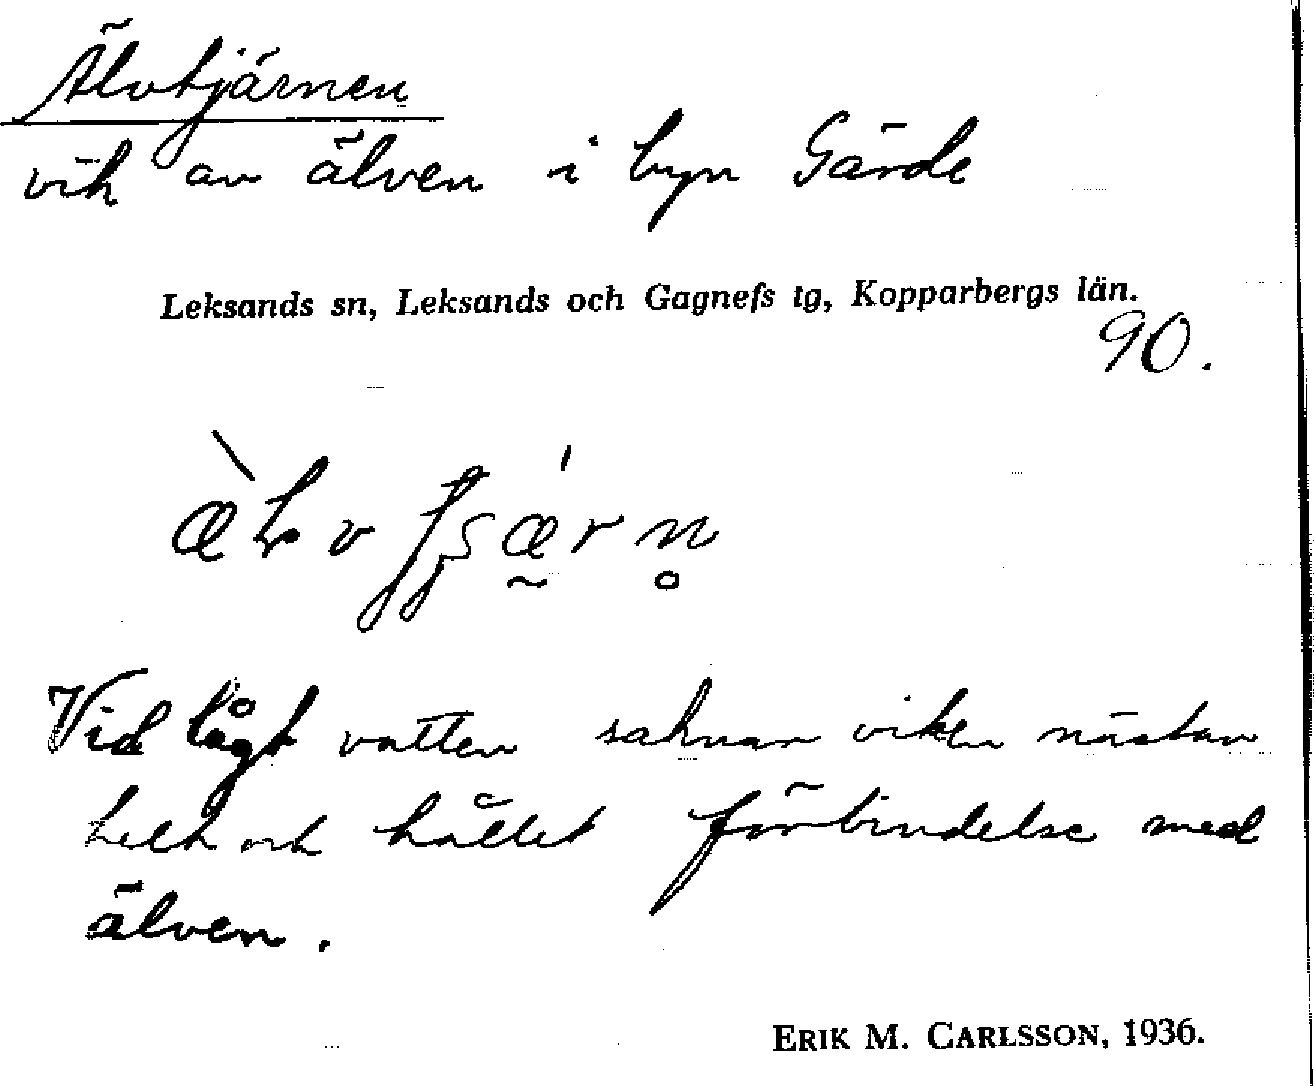 Älvtjärnen
vik av älven i byn Gärde
Leksands sn, Leksands och Gagnefs tg, Kopparbergs län.
90.
Vid lågt vatten saknar viken nästan
helt och hållet förbindelse med
älven.
ERIK M. CARLSSON, 1936.